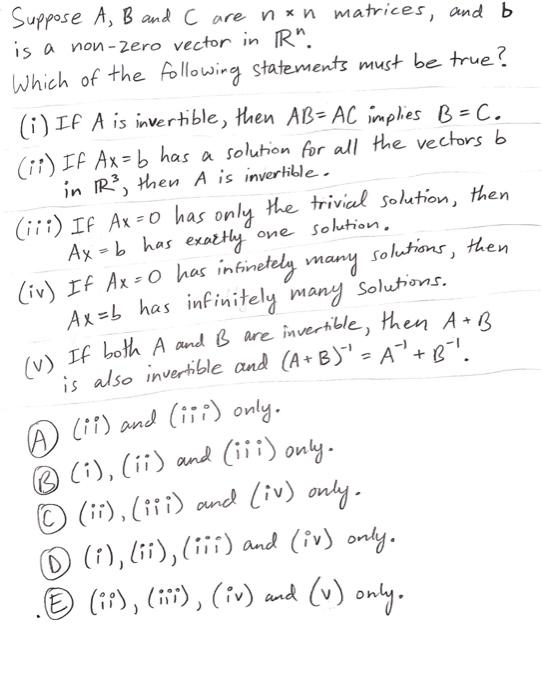 Suppose A, B and C are n × n matrices, and b
is a non-zero vector in ℝⁿ.
Which of the following statements must be true?
(i) If A is invertible, then AB = AC implies B = C.
(ii) If Ax = b has a solution for all the vectors b
in ℝ³, then A is invertible.
(iii) If Ax = 0 has only the trivial solution, then
Ax = b has exactly one solution.
(iv) If Ax = 0 has infinetely many solutions, then
Ax = b has infinitely many solutions.
(v) If both A and B are invertible, then A + B
is also invertible and (A + B)⁻¹ = A⁻¹ + B⁻¹.
Ⓐ (ii) and (iii) only.
Ⓑ (i), (ii) and (iii) only.
Ⓒ (ii), (iii) and (iv) only.
Ⓓ (i), (ii), (iii) and (iv) only.
.Ⓔ (ii), (iii), (iv) and (v) only.